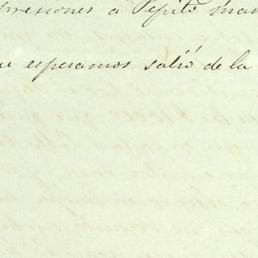 presiones á Pepito man
ue esperamos salió de la